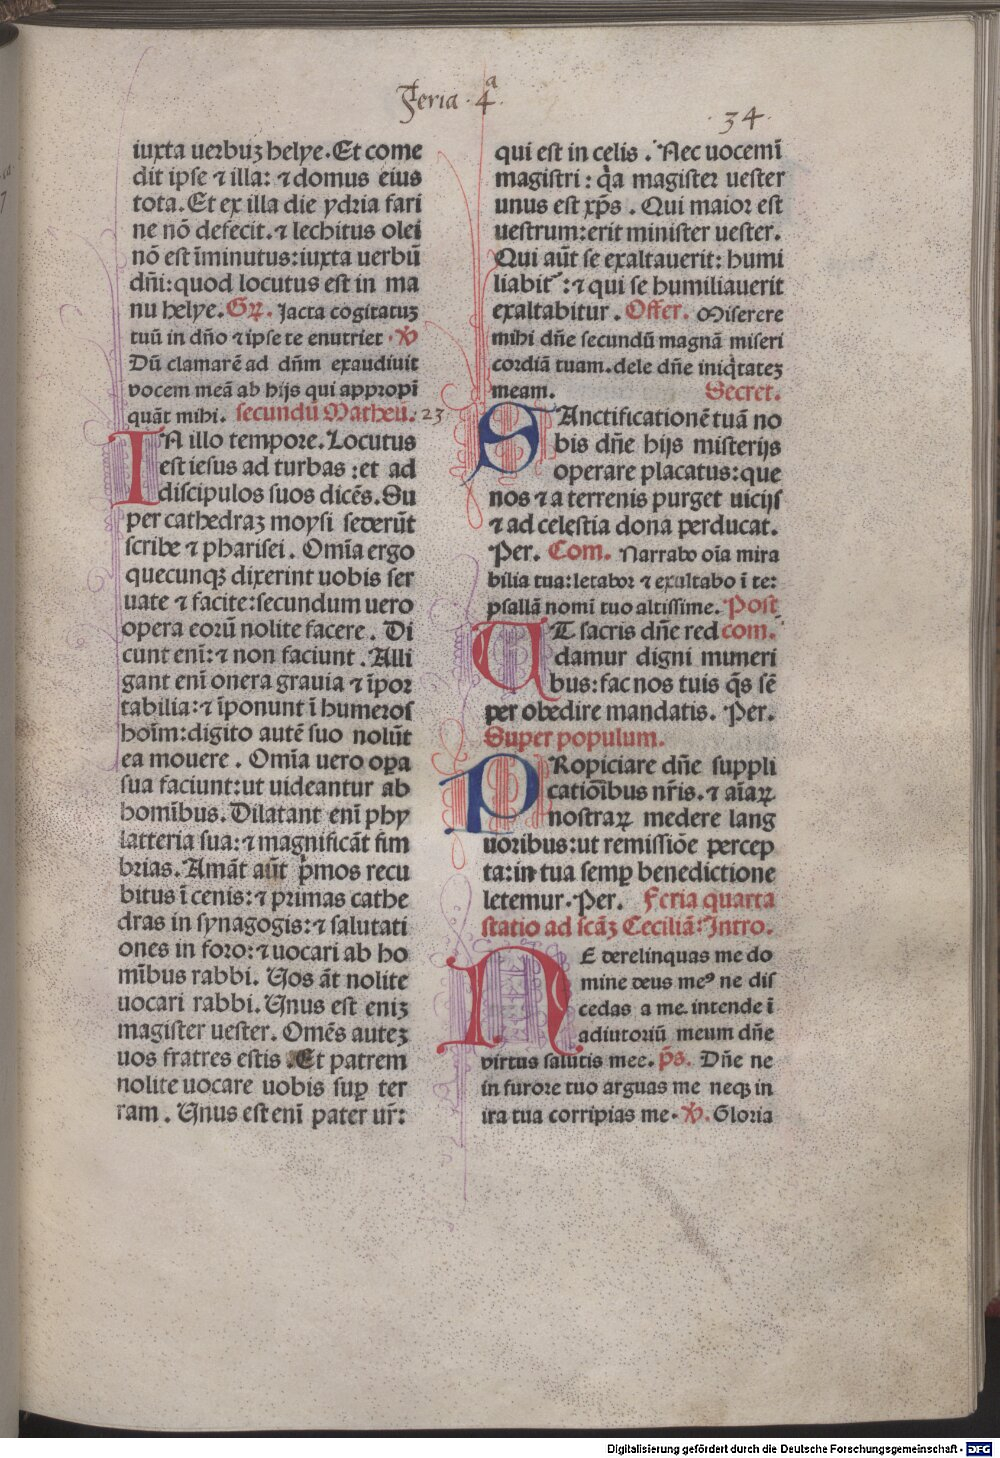 Feria · 4ª ·
· 34 ·
iuxta uerbuʒ helye. Et come
dit ipse ⁊ illa: ⁊ domus eius
tota. Et ex illa die ydria fari
ne nō defecit. ⁊ lechitus olei
nō est īminutus: iuxta uerbū
dn̄i: quod locutus est in ma
nu helye. Gꝝ. Jacta cogitatuʒ
tuū in dn̄o ⁊ ipse te enutriet · ℣
Dū clamarē ad dn̄m exaudiuit
vocem meā ab hijs qui appropī
quāt mihi. secundū Matheū. 23
IN illo tempore. Locutus
est iesus ad turbas : et ad
discipulos suos dicēs. Su
per cathedraʒ moysi sederūt
scribe ⁊ pharisei. Omīa ergo
quecunqꝫ dixerint uobis ser
uate ⁊ facite: secundum uero
opera eorū nolite facere. Di
cunt enī: ⁊ non faciunt. Alli
gant enī onera grauia ⁊ īpor
tabilia: ⁊ īponunt ī humeros
hoīm: digito autē suo nolūt
ea mouere. Omīa uero oꝑa
sua faciunt: ut uideantur ab
homībus. Dilatant enī phy
latteria sua: ⁊ magnificāt fim
brias. Amāt aūt p̄mos recu
bitus ī cenis: ⁊ primas cathe
dras in synagogis: ⁊ salutati
ones in foro: ⁊ uocari ab ho
mībus rabbi. Uos āt nolite
uocari rabbi. Unus est eniʒ
magister uester. Omēs auteʒ
uos fratres estis. Et patrem
nolite uocare uobis suꝑ ter
ram. Unus est enī pater ur̄:
qui est in celis. Nec uocemī
magistri: qͣa magister uester
unus est xp̄s. Qui maior est
uestrum: erit minister uester.
Qui aūt se exaltauerit: humi
liabit᷑: ⁊ qui se humiliauerit
exaltabitur. Offer. Miserere
mihi dn̄e secundū magnā miseri
cordiā tuam. dele dn̄e iniqͥtateʒ
meam. Secret.
SAnctificationē tuā no
bis dn̄e hijs misterijs
operare placatus: que
nos ⁊ a terrenis purget uicijs
⁊ ad celestia dona perducat.
Per. Com. Narrabo oīa mira
bilia tua: letabor ⁊ exultabo ī te:
psallā nomī tuo altissime. Post
UT sacris dn̄e red com.
damur digni muneri
bus: fac nos tuis q̄s sē
per obedire mandatis. Per.
Super populum.
PRopiciare dn̄e suppli
catiōībus nr̄is. ⁊ aīaꝝ
nostraꝝ medere lang
uoribus: ut remissiōe percep
ta: in tua semꝑ benedictione
letemur. Per. Feria quarta
statio ad scāʒ Ceciliā: Intro.
NE derelinquas me do
mine deus meꝰ ne dis
cedas a me. intende ī
adiutoriū meum dn̄e
virtus salutis mee. p̄s. Dn̄e ne
in furore tuo arguas me neqꝫ in
ira tua corripias me. ℣. Gloria
Digitalisierung gefördert durch die Deutsche Forschungsgemeinschaft - DFG